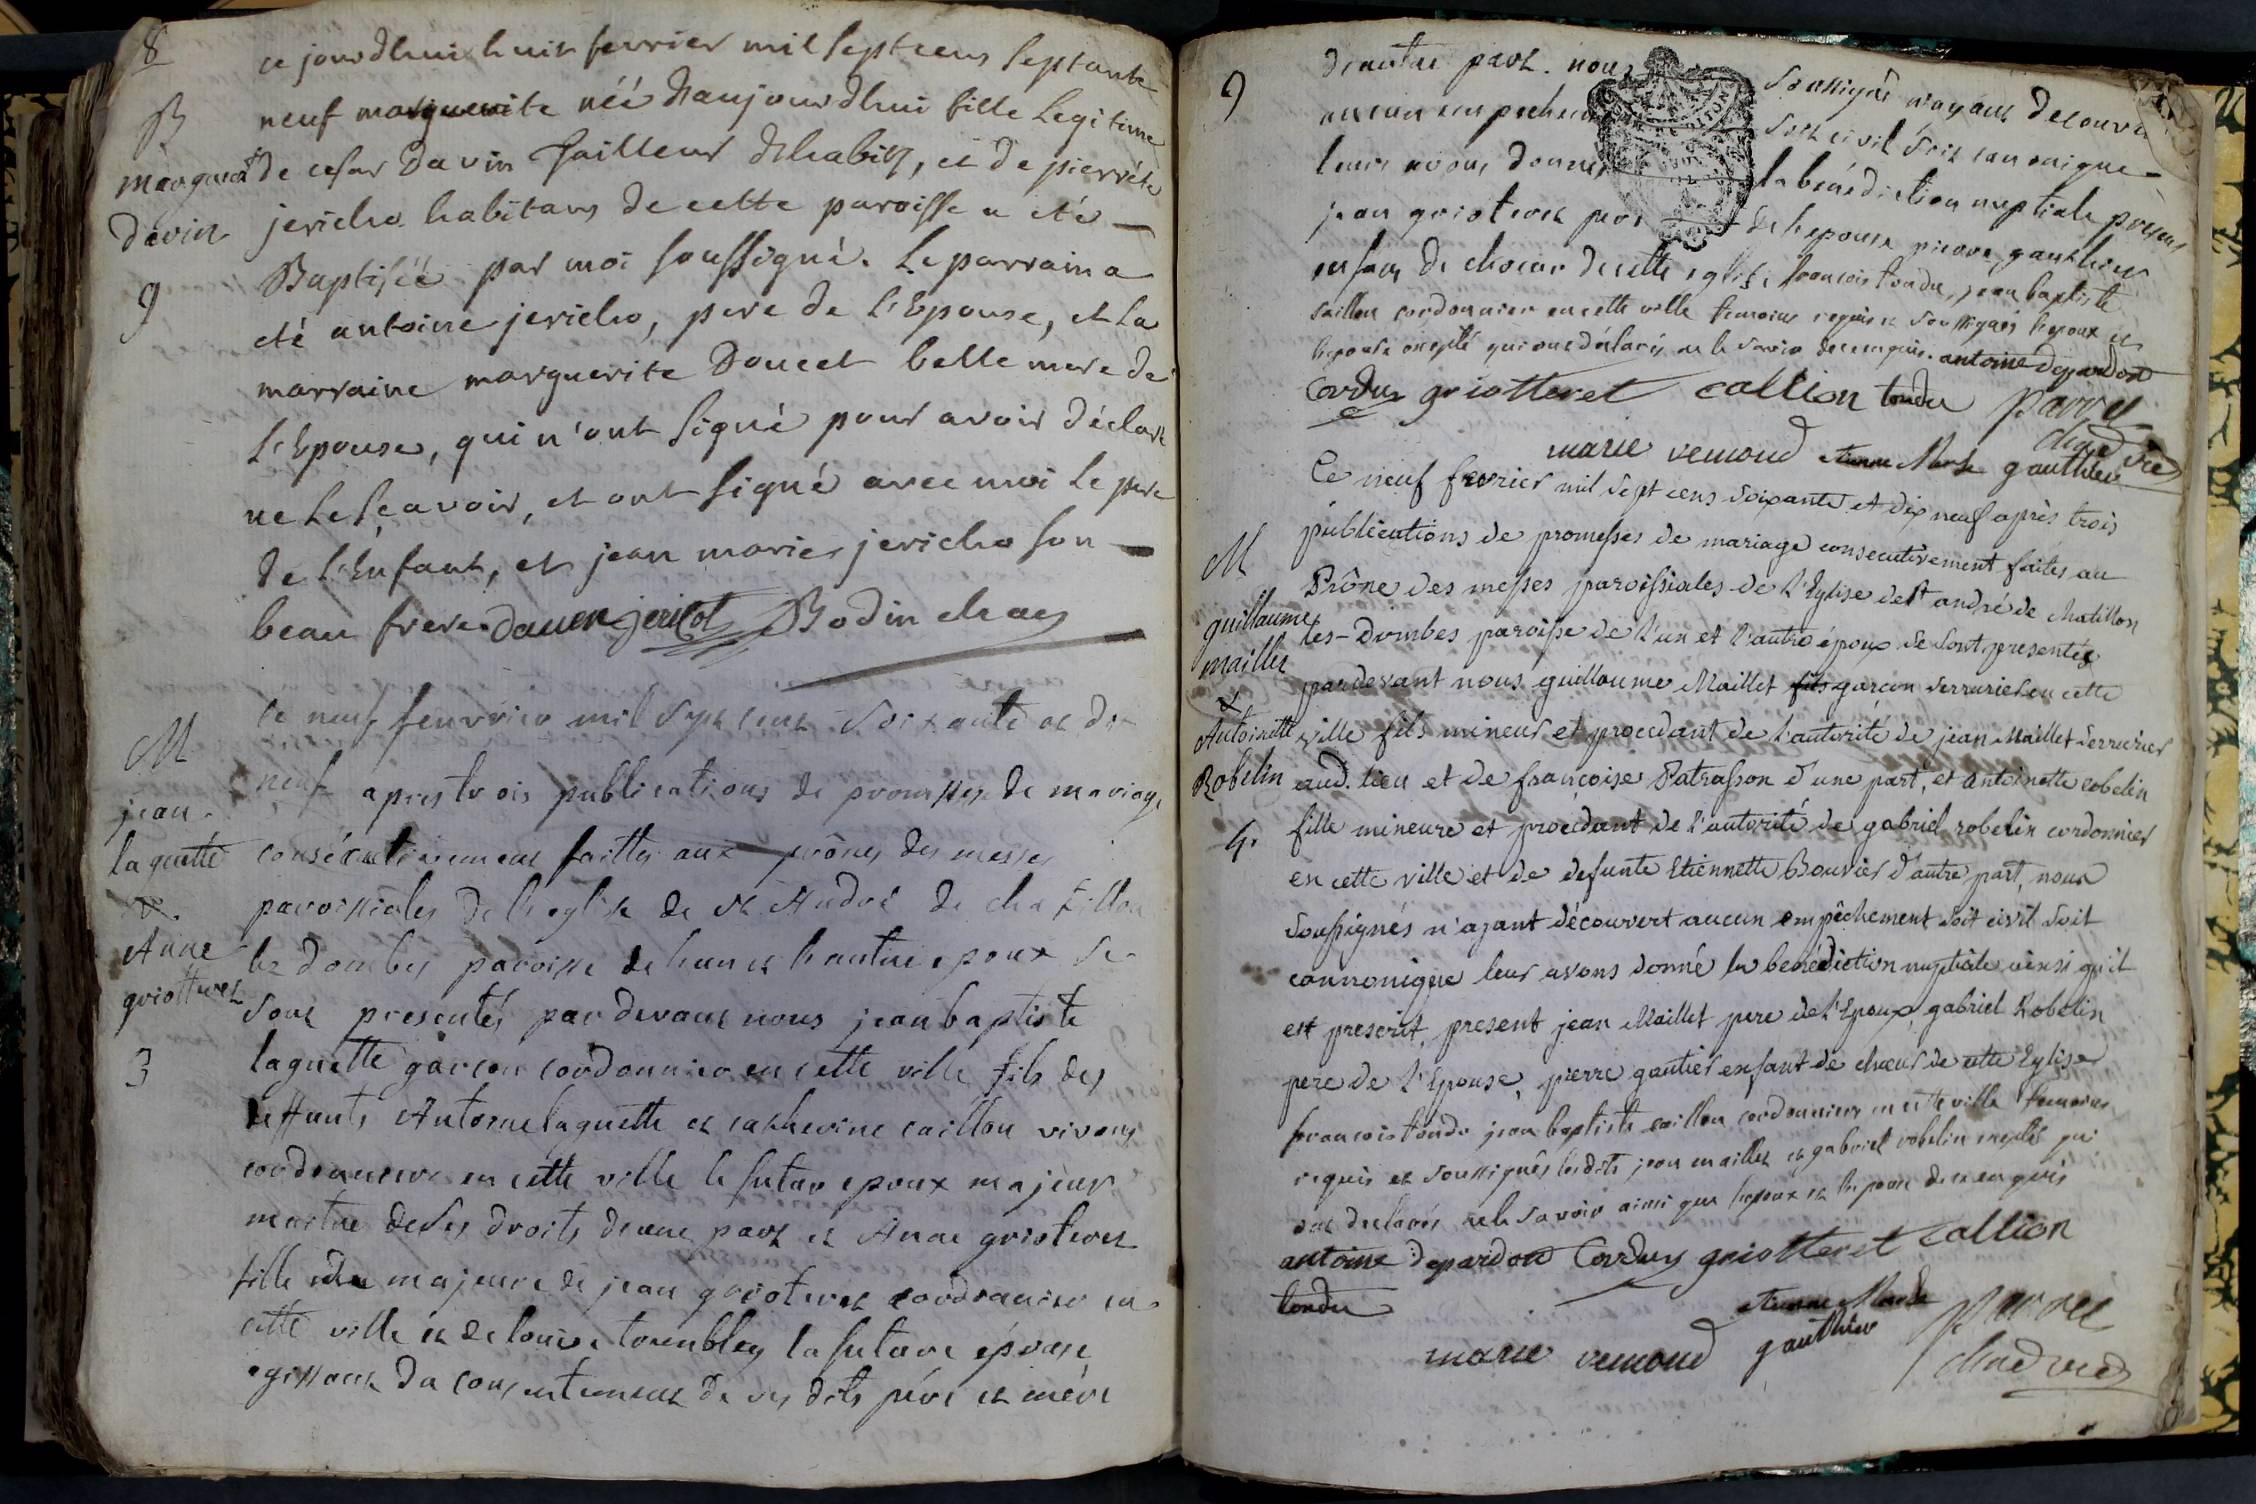 8
ce jourdhui huit fevrier mil sept cens septante
neuf marguerite néé d'aujourdhui fille Legitime
de cesar Davin Tailleur d'habits, et de pierrete
jericho habitans de cette paroisse a eté
Baptiséé par moi soussigné. Le parrain a
eté antoine jericho, pere de L'Epouse, et La
marraine marguerite Doucet belle mere de
L'Epouse, qui n'ont signé pour avoir déclaré
ne le sçavoir, et ont signé avec moi Le pere
de L'Enfant, et jean marie jericho son
beau frere. dauen jericot Bodin
B
marguerite
davin
9
Ce neuf fevrier mil sept cent soixante et dix
neuf apres trois publications de promesses de mariage
consécutivement faittes aux prônes des messes
paroissiales de l'eglise de st André de chatillon
lez dombes paroisse de l'un et l'autre epoux se
sont presentés pardevant nous jean baptiste
laguette garcon cordonnier en cette ville fils des
deffunts Antoine laguette et catherine caillon vivans
cordonniers en cette ville le futur epoux majeur
maitre de ses droits d'une part et Anne grioteret
fille majeure de jean grioteret cordonnier en
cette ville et de louise tremblay la future épouse
agissant du consentement de ses dits pére et mére
M
jean
laguette
&
Anne
griotteret
3
9
d'autre part. nous soussignés n'ayant decouvert
aucun empechement soit civil soit canonique
leurs avons donné la bénédiction nuptiale présens
jean grioteret pere de l'epouse pierre gauthier
enfant de choeur de cette eglise francois tondu, jean baptiste
caillon cordonnier en cette ville temoins requis et soussignés l'epoux et
l'epouse excepté qui ont déclarés ne le savoir de ce enquis. antoine depardon
Cordus griotteret collion tondu parre
marie vemond gauthier
Ce neuf fevrier mil sept cens soixante et dix neuf après trois
publications de promesses de mariage consecutivement faites au
Prône des messes paroissiales de l'Eglise de st andré de chatillon
les-Dombes paroisse de l'un et l'autre époux se sont presentés
pardevant nous guillaume Maillet garcon serrurier en cette
ville fils mineur et procedant de l'autorité de jean Maillet serrurier
aud. lieu et de françoise Patrasson d'une part, et antoinette robelin
fille mineure et procedant de l'autorité de gabriel robelin cordonnier
en cette ville et de defunte Etiennette Bouvier d'autre part, nous
soussignés n'ayant découvert aucun empêchement soit civil soit
cannonique leur avons donné la benédiction nuptiale ainsi qu'il
est prescrit, present jean Maillet pere de l'Epoux, gabriel Robelin
pere de l'Epouse, pierre gautier enfant de chœur de cette Eglise
francois tondu jean baptiste caillon cordonniers en cette ville temoins
requis et soussignés lesdits jean maillet et gabriel robelin exeptés qui
ont declarés ne le savoir ainsi que l'epoux et l'epouse de ce enquis
antoine depardon Cordus griotteret collion
tondu
marie vemond gauthier parre
M
guillaume
maillet
&
Antoinette
Robelin
4.